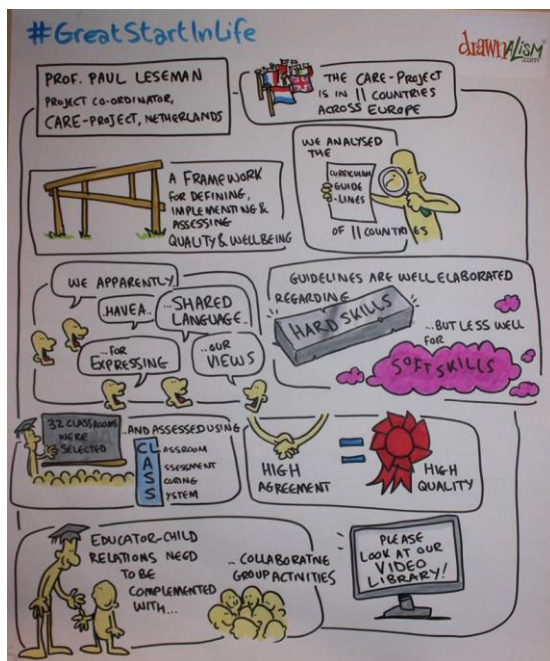 #GreatStartInLife
drawnalism
.com
PROF. PAUL LESEMAN
PROJECT CO-ORDINATOR,
CARE-PROJECT, NETHERLANDS
THE CARE-PROJECT
IS IN 11 COUNTRIES
ACROSS EUROPE
A FRAMEWORK
FOR DEFINING,
IMPLEMENTING &
ASSESSING
QUALITY & WELLBEING
WE ANALYSED
THE
CURRICULUM
GUIDE
-LINES
OF 11 COUNTRIES
WE APPARENTLY
HAVE A...
...SHARED
LANGUAGE...
...FOR
EXPRESSING
...OUR
VIEWS
GUIDELINES ARE WELL ELABORATED
REGARDING
HARD SKILLS
...BUT LESS WELL
FOR
SOFT SKILLS
32 CLASSROOMS
WERE
SELECTED
...AND ASSESSED USING
CLASSROOM
ASSESSMENT
SCORING
SYSTEM
HIGH
AGREEMENT
=
HIGH
QUALITY
EDUCATOR-CHILD
RELATIONS NEED
TO BE
COMPLEMENTED
WITH...
...COLLABORATIVE
GROUP ACTIVITIES
PLEASE
LOOK AT OUR
VIDEO
LIBRARY!